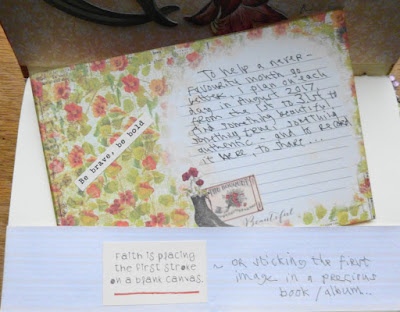 To help a never-
favourite month go
better I plan on each
date in August 2017,
from the 1st to 31st to
find something beautiful,
something true, something
authentic and to record
it here, to share...
Be brave, be bold
Beautiful
Faith is placing
the first stroke
on a blank canvas.
~ or sticking the first
image in a precious
book/album..